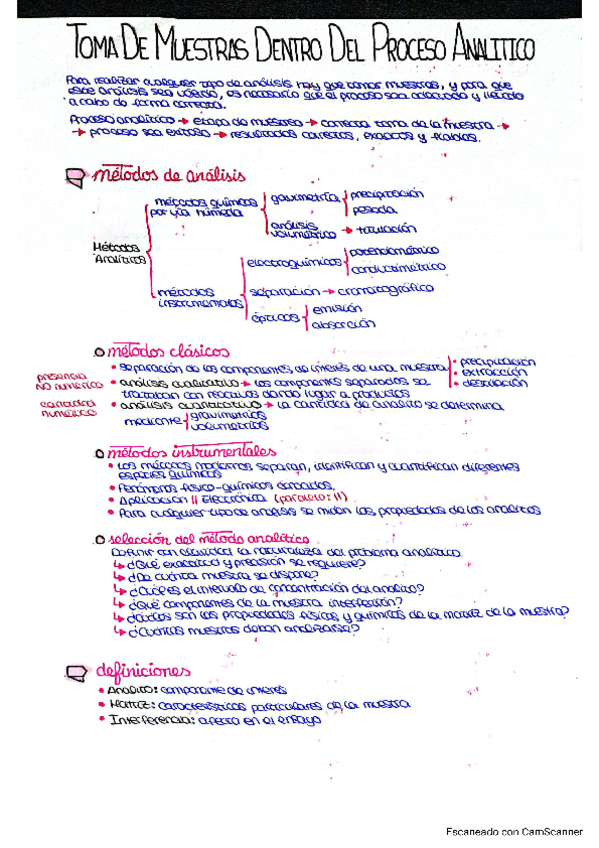 TOMA DE MUESTRAS DENTRO DEL PROCESO ANALITICO
Para realizar cualquier tipo de análisis hay que tomar muestras, y para que
este análisis sea válido, es necesario que el proceso sea adecuado y llevado
a cabo de forma correcta.
Proceso analítico → etapa de muestreo → correcta toma de la muestra →
→ proceso sea exitoso → resultados correctos, exactos y fiables.
métodos de análisis
Métodos Analíticos
métodos químicos por vía húmeda
gravimetría
precipitación
pesada
análisis volumétrico → titulación
métodos instrumentales
electroquímicos
potenciométrico
conductimétrico
separación → cromatográfico
ópticos
emisión
absorción
métodos clásicos
• separación de los componentes de interés de una muestra
• precipitación
• extracción
• destilación
presencia NO numérico
• análisis cualitativo → los componentes separados se
trataban con reactivos dando lugar a productos
cantidad numérico
• análisis cuantitativo → la cantidad de analito se determina
mediante
gravimétricos
volumétricos
métodos instrumentales
• Los métodos modernos separan, identifican y cuantifican diferentes
especies químicas
• Fenómenos físico-químicos conocidos
• Aplicación || Electrónica (paralelo: ||)
• Para cualquier tipo de análisis se miden las propiedades de los analitos
selección del método analítico
Definir con claridad la naturaleza del problema analítico
↳ ¿Qué exactitud y precisión se requiere?
↳ ¿De cuánta muestra se dispone?
↳ ¿Cuál es el intervalo de concentración del analito?
↳ ¿Qué componentes de la muestra interferirán?
↳ ¿Cuáles son las propiedades físicas y químicas de la matriz de la muestra?
↳ ¿Cuántas muestras deban analizarse?
definiciones
• Analito: componente de interés
• Matriz: características particulares de la muestra
• Interferencia: afecta en el ensayo
Escaneado con CamScanner